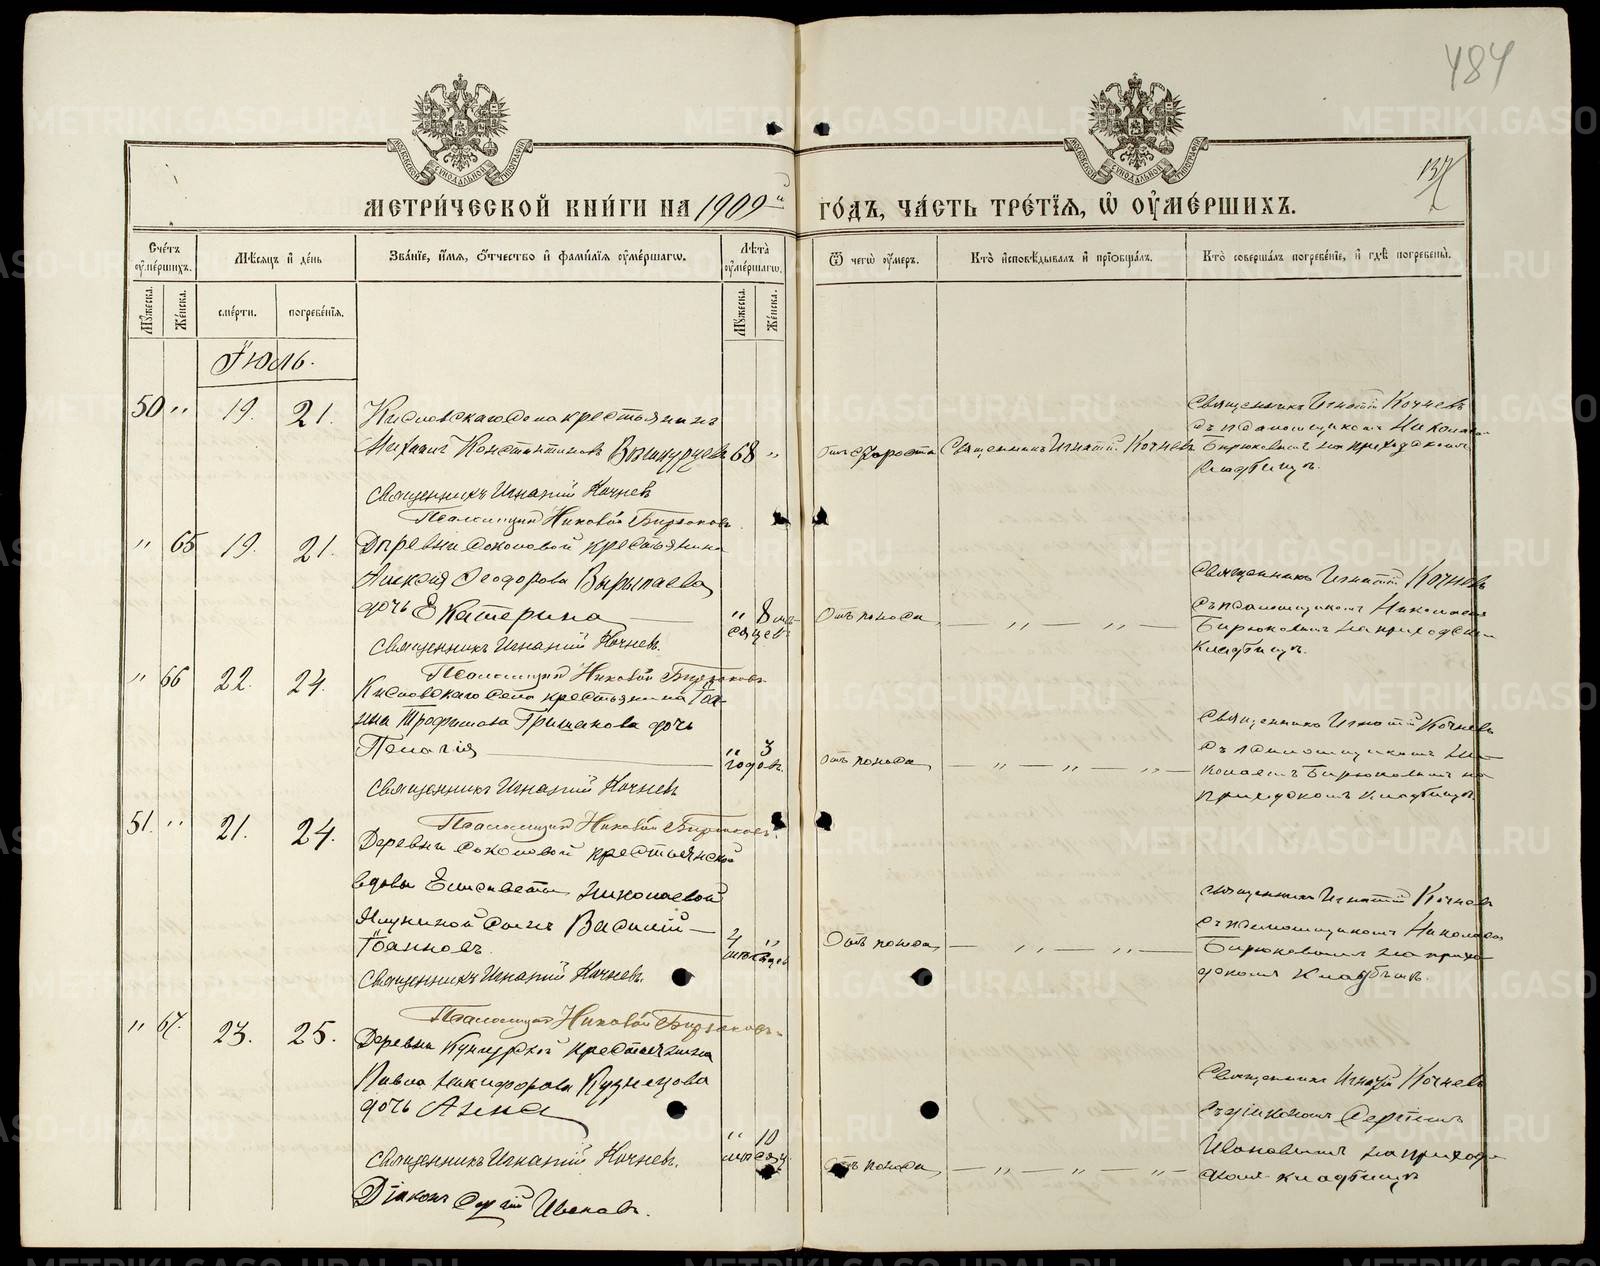 484
137
МЕТРИЧЕСКОЙ КНИГИ НА 1909й ГОДЪ, ЧАСТЬ ТРЕТІЯ, Ѿ ОУМЕРШИХЪ.
Счетъ оумершихъ.
Мѣсяцъ и день
Званіе, имя, отчество и фамилія оумершагѡ.
Лѣта оумершагѡ.
Ѿ чегѡ оумеръ.
Кто исповѣдывалъ и пріобщалъ.
Кто совершалъ погребеніе, и гдѣ погребены.
Мужеска.
Женска.
смерти.
погребенія.
Мужеска.
Женска.
Іюль.
50 " 19. 21. Кисловскаго села крестьянинъ
Михаилъ Константиновъ 68 "
отъ старости
Священникъ Игнатій Кочневъ
Священникъ Игнатій Кочневъ
съ псаломщикомъ Николаемъ
Бирюковымъ на приходскомъ
кладбищѣ.
Священникъ Игнатій Кочневъ
Псаломщикъ Николай Бирюковъ.
" 65 19. 21. Деревни Соколовой крестьянина
Алексія Ѳеодорова Вырыпаева
дочь Екатерина " 8 мѣ-
сяцевъ
Отъ поноса, — " — " —
Священникъ Игнатій Кочневъ
съ псаломщикомъ Николаемъ
Бирюковымъ на приходском
кладбищѣ.
Священникъ Игнатій Кочневъ.
Псаломщикъ Николай Бирюковъ
" 66 22. 24. Кисловскаго села крестьянина Іоа-
нна Трофимова Гришакова дочь
Пелагія " 3
годовъ.
отъ поноса, — " — " — " —
Священникъ Игнатій Кочневъ
съ псаломщикомъ Ни-
колаемъ Бирюковымъ на
приходскомъ кладбищѣ.
Священникъ Игнатій Кочневъ
Псаломщикъ Николай Бирюковъ.
51. " 21. 24. Деревни Соколовой крестьянской
вдовы Елисаветы Николаевой
сынъ Василій
Іоанновъ. 4 "
мѣсяцев
Отъ поноса, — " — " —
Священникъ Игнатій Кочневъ
съ псаломщикомъ Николаем
Бирюковымъ на прихо-
дскомъ кладбищѣ.
Священникъ Игнатій Кочневъ.
Псаломщикъ Николай Бирюковъ.
" 67. 23. 25. Деревни Кунгурской крестьянина
Павла Никифорова Кузнецова
дочь Анна " 10
мѣсяц
Отъ поноса, — " — " — " —
Священникъ Игнатій Кочневъ
съ діакономъ Сергіемъ
Ивановымъ на приход-
скомъ кладбищѣ
Священникъ Игнатій Кочневъ.
Діаконъ Сергій Ивановъ.
METRIKI.GASO-URAL.RU